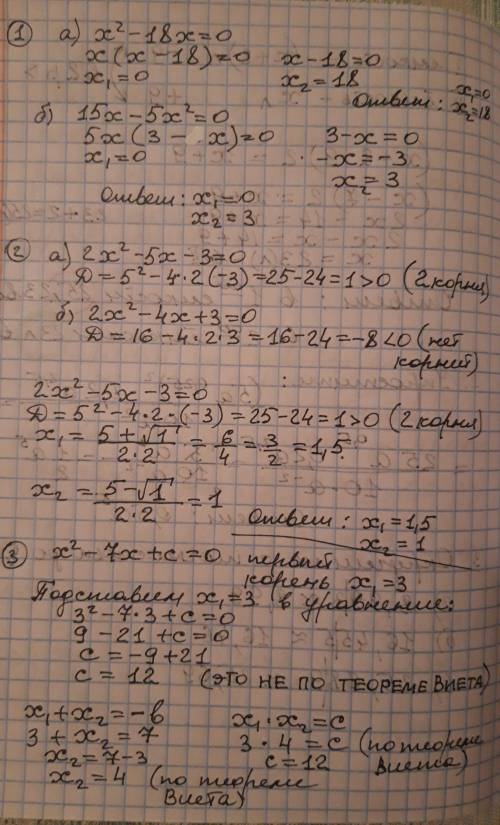 ① а) x² - 18x = 0
x(x - 18) = 0   x - 18 = 0
x₁ = 0   x₂ = 18
Ответ: x₁ = 0
x₂ = 18
б) 15x - 5x² = 0
5x(3 - x) = 0   3 - x = 0
x₁ = 0   -x = -3
x₂ = 3
Ответ: x₁ = 0
x₂ = 3
② а) 2x² - 5x - 3 = 0
Д = 5² - 4·2(-3) = 25 - 24 = 1 > 0 (2 корня)
б) 2x² - 4x + 3 = 0
Д = 16 - 4·2·3 = 16 - 24 = -8 < 0 (нет
корний)
2x² - 5x - 3 = 0
Д = 5² - 4·2·(-3) = 25 - 24 = 1 > 0 (2 корня)
x₁ = (5 + √1)/(2·2) = 6/4 = 3/2 = 1,5
x₂ = (5 - √1)/(2·2) = 1
Ответ: x₁ = 1,5
x₂ = 1
③ x² - 7x + c = 0   первый
корень x₁ = 3
Подставим x₁ = 3 в уравнение:
3² - 7·3 + c = 0
9 - 21 + c = 0
c = -9 + 21
c = 12   (ЭТО НЕ ПО ТЕОРЕМЕ ВИЕТА)
x₁ + x₂ = -в   x₁ · x₂ = c
3 + x₂ = 7   3 · 4 = c (по теореме
x₂ = 7 - 3   c = 12   Виета)
x₂ = 4 (по теореме
Виета)